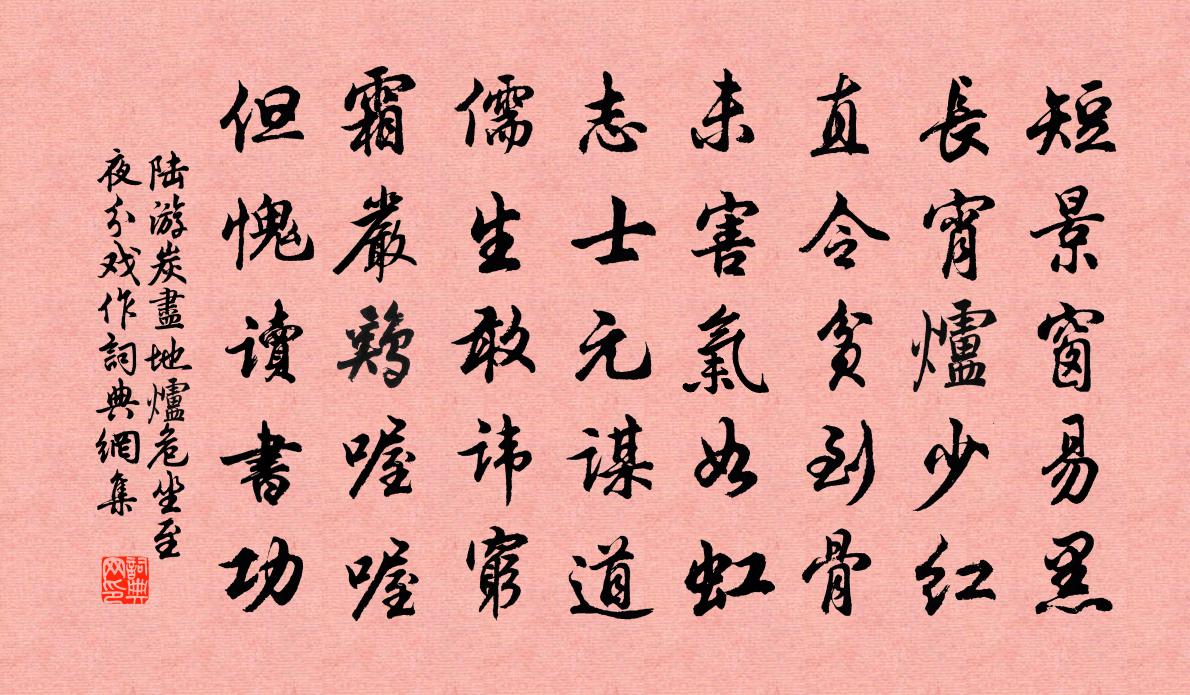 短景窗易黑
長宵爐少紅
直令貧到骨
未害氣如虹
志士元謀道
儒生敢諱窮
霜嚴鷄喔喔
但愧讀書功
陆游炭盡地爐危坐至
夜分戏作詞典網集
詞典
网印